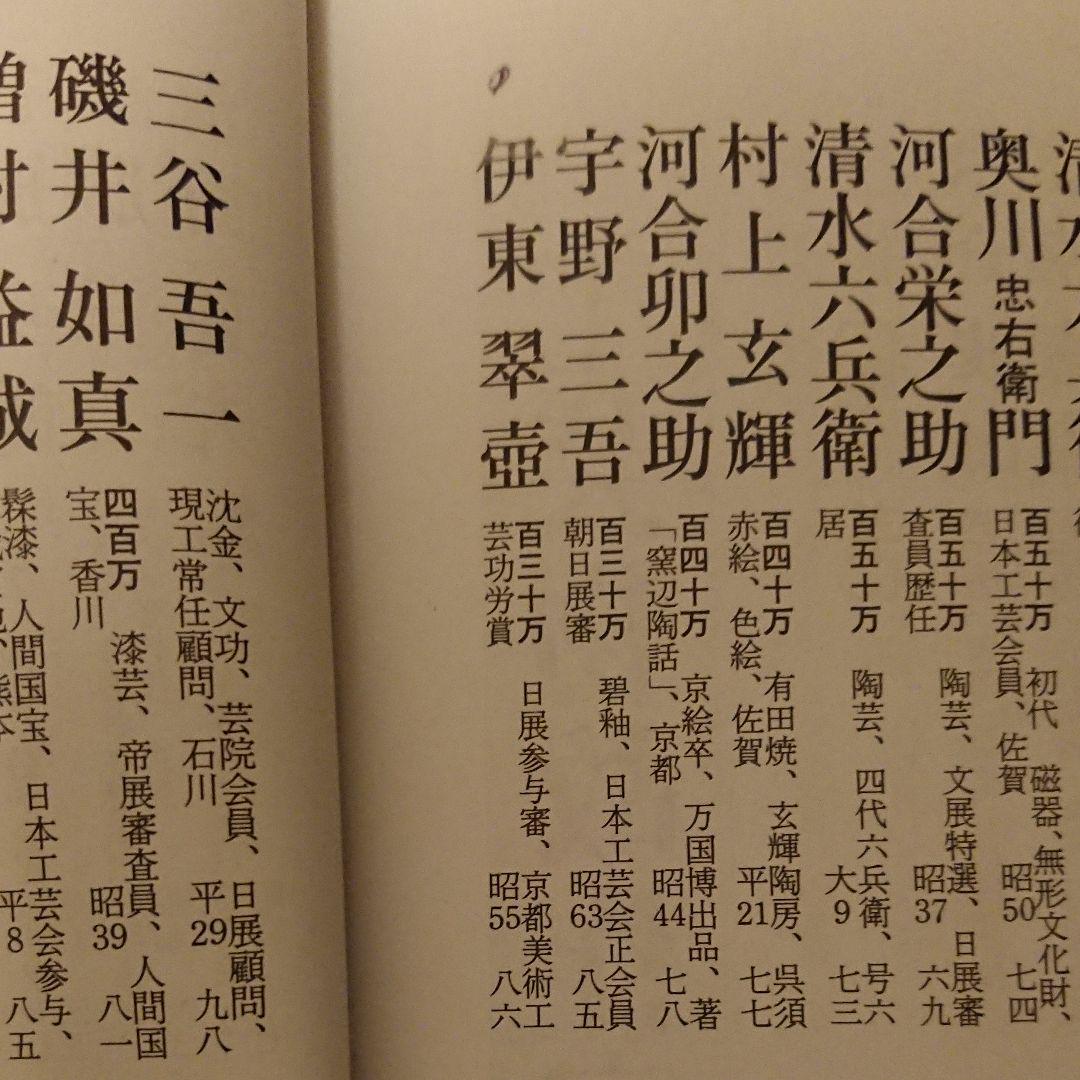 奥川忠右衛門
百五十万 初代 磁器、無形文化財、
日本工芸会員、佐賀 昭50 七四
河合栄之助
百五十万 陶芸、文展特選、日展審
査員歴任 昭37 六九
清水六兵衛
百五十万 陶芸、四代六兵衛、号六
居 大9 七三
村上玄輝
百四十万 有田焼、玄輝陶房、呉須
赤絵、色絵、佐賀 平21 七七
河合卯之助
百四十万 京絵卒、万国博出品、著
「窯辺陶話」、京都 昭44 七八
宇野三吾
百三十万 碧釉、日本工芸会正会員
朝日展審 昭63 八五
伊東翠壺
百三十万 日展参与審、京都美術工
芸功労賞 昭55 八六
三谷吾一
沈金、文功、芸院会員、日展顧問、
現工常任顧問、石川 平29 九八
磯井如真
四百万 漆芸、帝展審査員、人間国
宝、香川 昭39 八一
髹漆、人間国宝、日本工芸会参与、
平8 八五